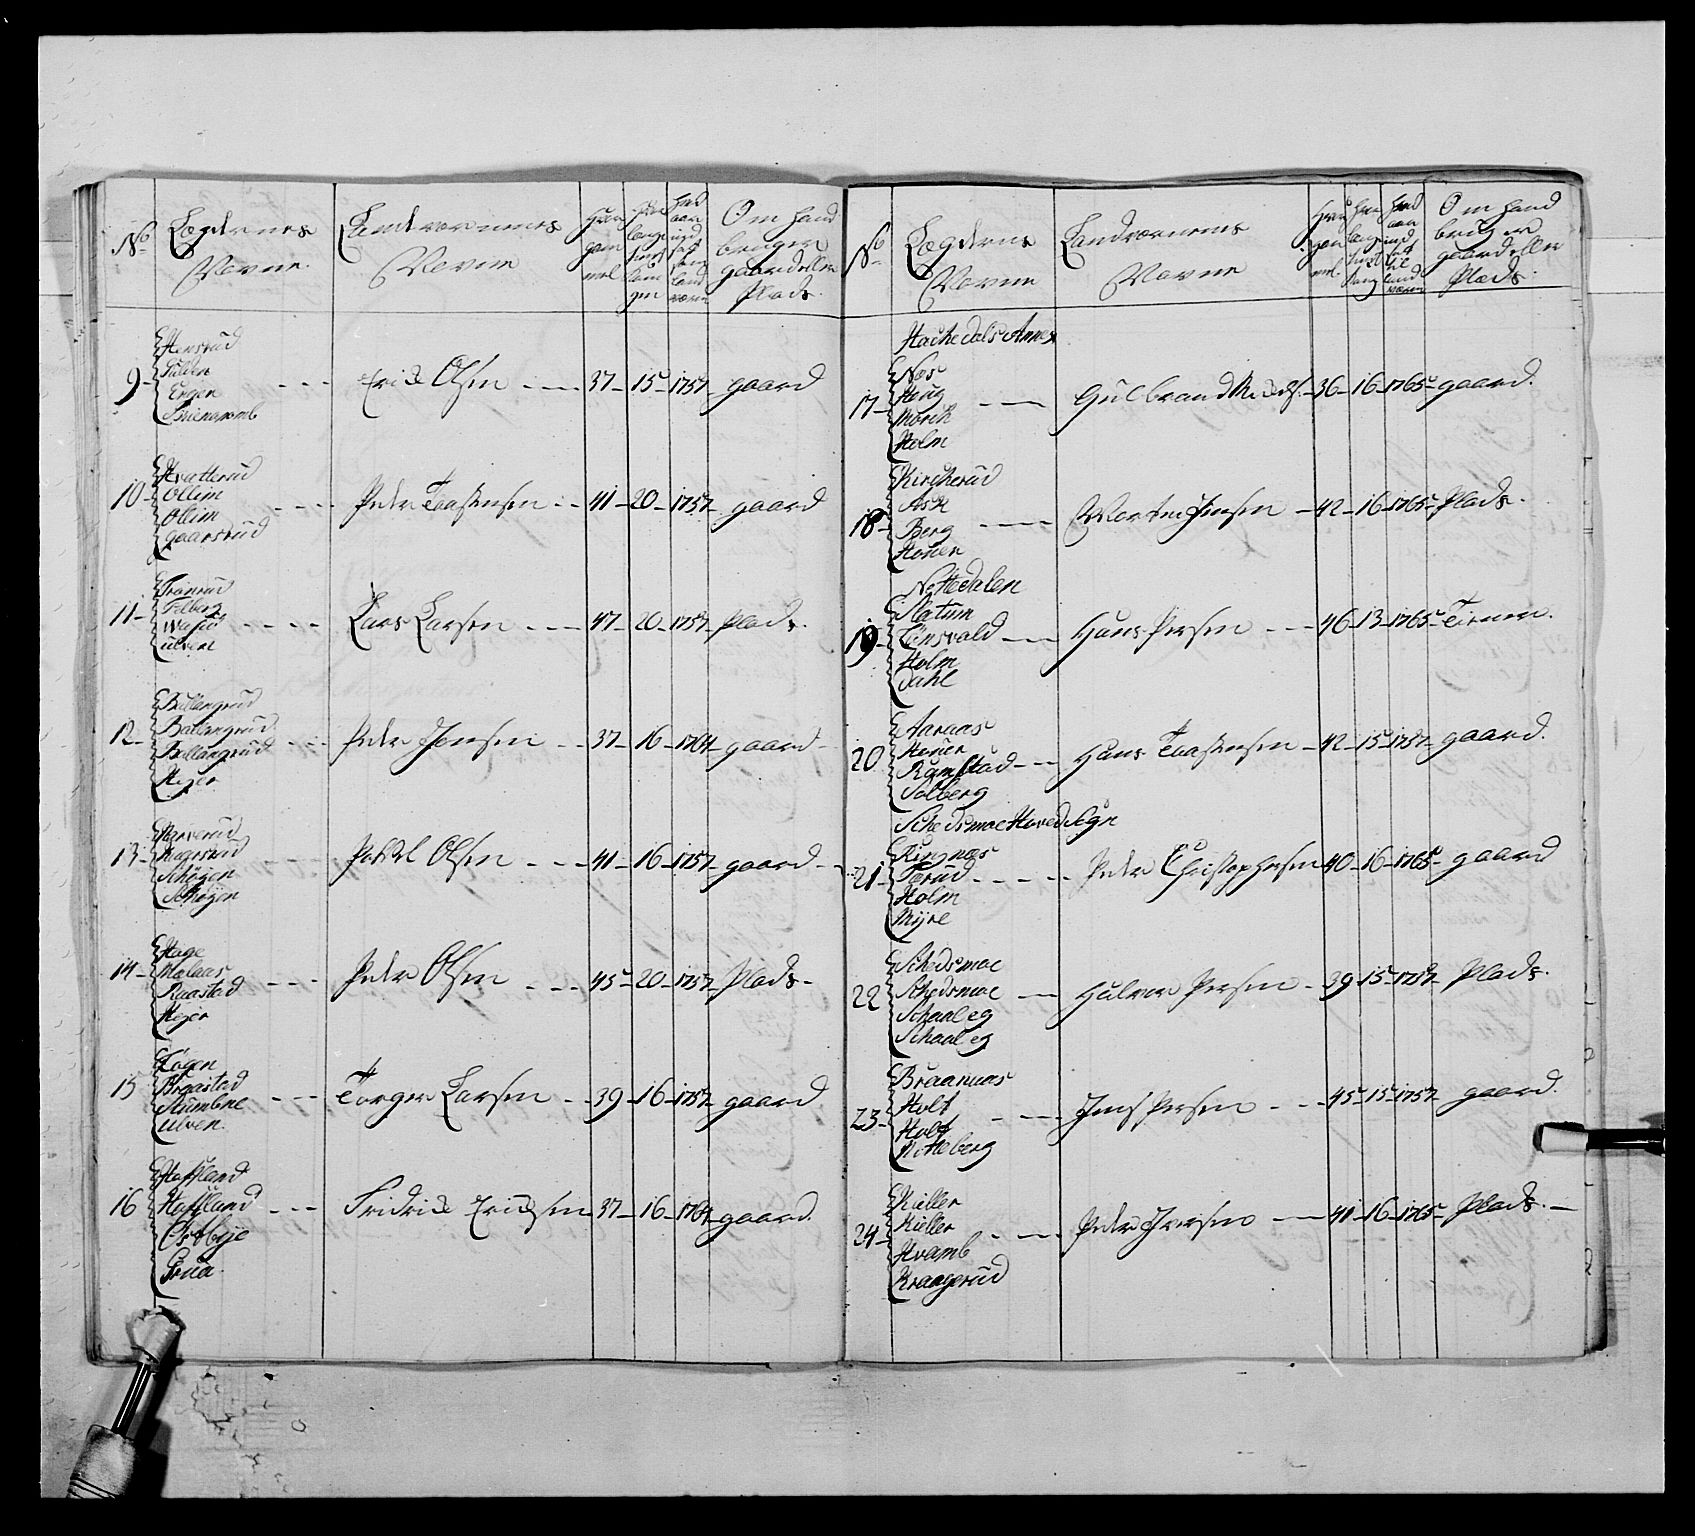 No
Lægdernes Nafne
Landvernenes Nafne
Hvor gammel
Hvor lange tient Kongen
Hvad aar indsat til Landværn
Om hand bruger gaard eller Plads.
9 - Hensrud
Fulden
Engen
Erich Olsen - 37 - 15 - 1757 - gaard
10 - Hvatterud
Ollim
Ollim
Gaarsrud
Peder Taastensen - 41 - 20 - 1757 - gaard
11 - Tranrud
Filberg
Ulven
Lars Larsen - 47 - 20 - 1757 - Plads.
12 - Ballangrud
Ballangrud
Ballangrud
Heyer
Peder Jensen - 37 - 16 - 1764 - gaard
13 - Narverud
Schøyen
Schøyen
PoVel Olsen - 41 - 16 - 1757 - gaard
14 - Hage
Mælaas
Raastad
Heyer
Peder Olsen - 45 - 20 - 1757 - Plads -
15 Løgen
Braastad
Stumbne
Ulven.
Torger Larsen - 39 - 16 - 1757 - gaard
16 Hofland
Hofland
Østbye
Grua.
Fridric Ericksen - 37 - 16 - 1764 - gaard.
No
Lægderns Nafne
Landværnenes Nafne
Hvor gammel.
Hvor lange tient Kong
Hvad aar indsat til Landværn
Om hand bruger gaard eller Plads.
Hachedals Annex
17 - Næs
Houg
Morch
Holm
Gulbrand - 36 - 16 - 1765 - gaard.
18 - Kircherud
Ask
Berg
Houer
Morten Jensen - 42 - 16 - 1765 - Plads.
Nittedalen
19 - Slatum
Lønsvald
Holm
Dahl
Hans Persen - 46 - 13 - 1765 - Tiener.
20 Aaraas
Houer
Ramstad
Solberg
Hans Taastensen - 42 - 15 - 1757 - gaard.
Schedsmoe Hoved Sogn
21 - Ringnæs
Torud
Holm
Myre
Peder Christophersen 40 - 16 - 1765 - gaard
22 Schedsmoe
Schedsmoe
Schaaleg
Schaaleg
Halvor Persen - 39 - 15 - 1757 - Plads.
23 - Braanaas
Holt
Holt
Kitteberg
Jens Persen - 45 - 15 - 1757 - gaard.
24 - Kieller
Kieller
Hvamb
Kraagerud
Peder Iversen - 41 - 16 - 1765 - Plads. -